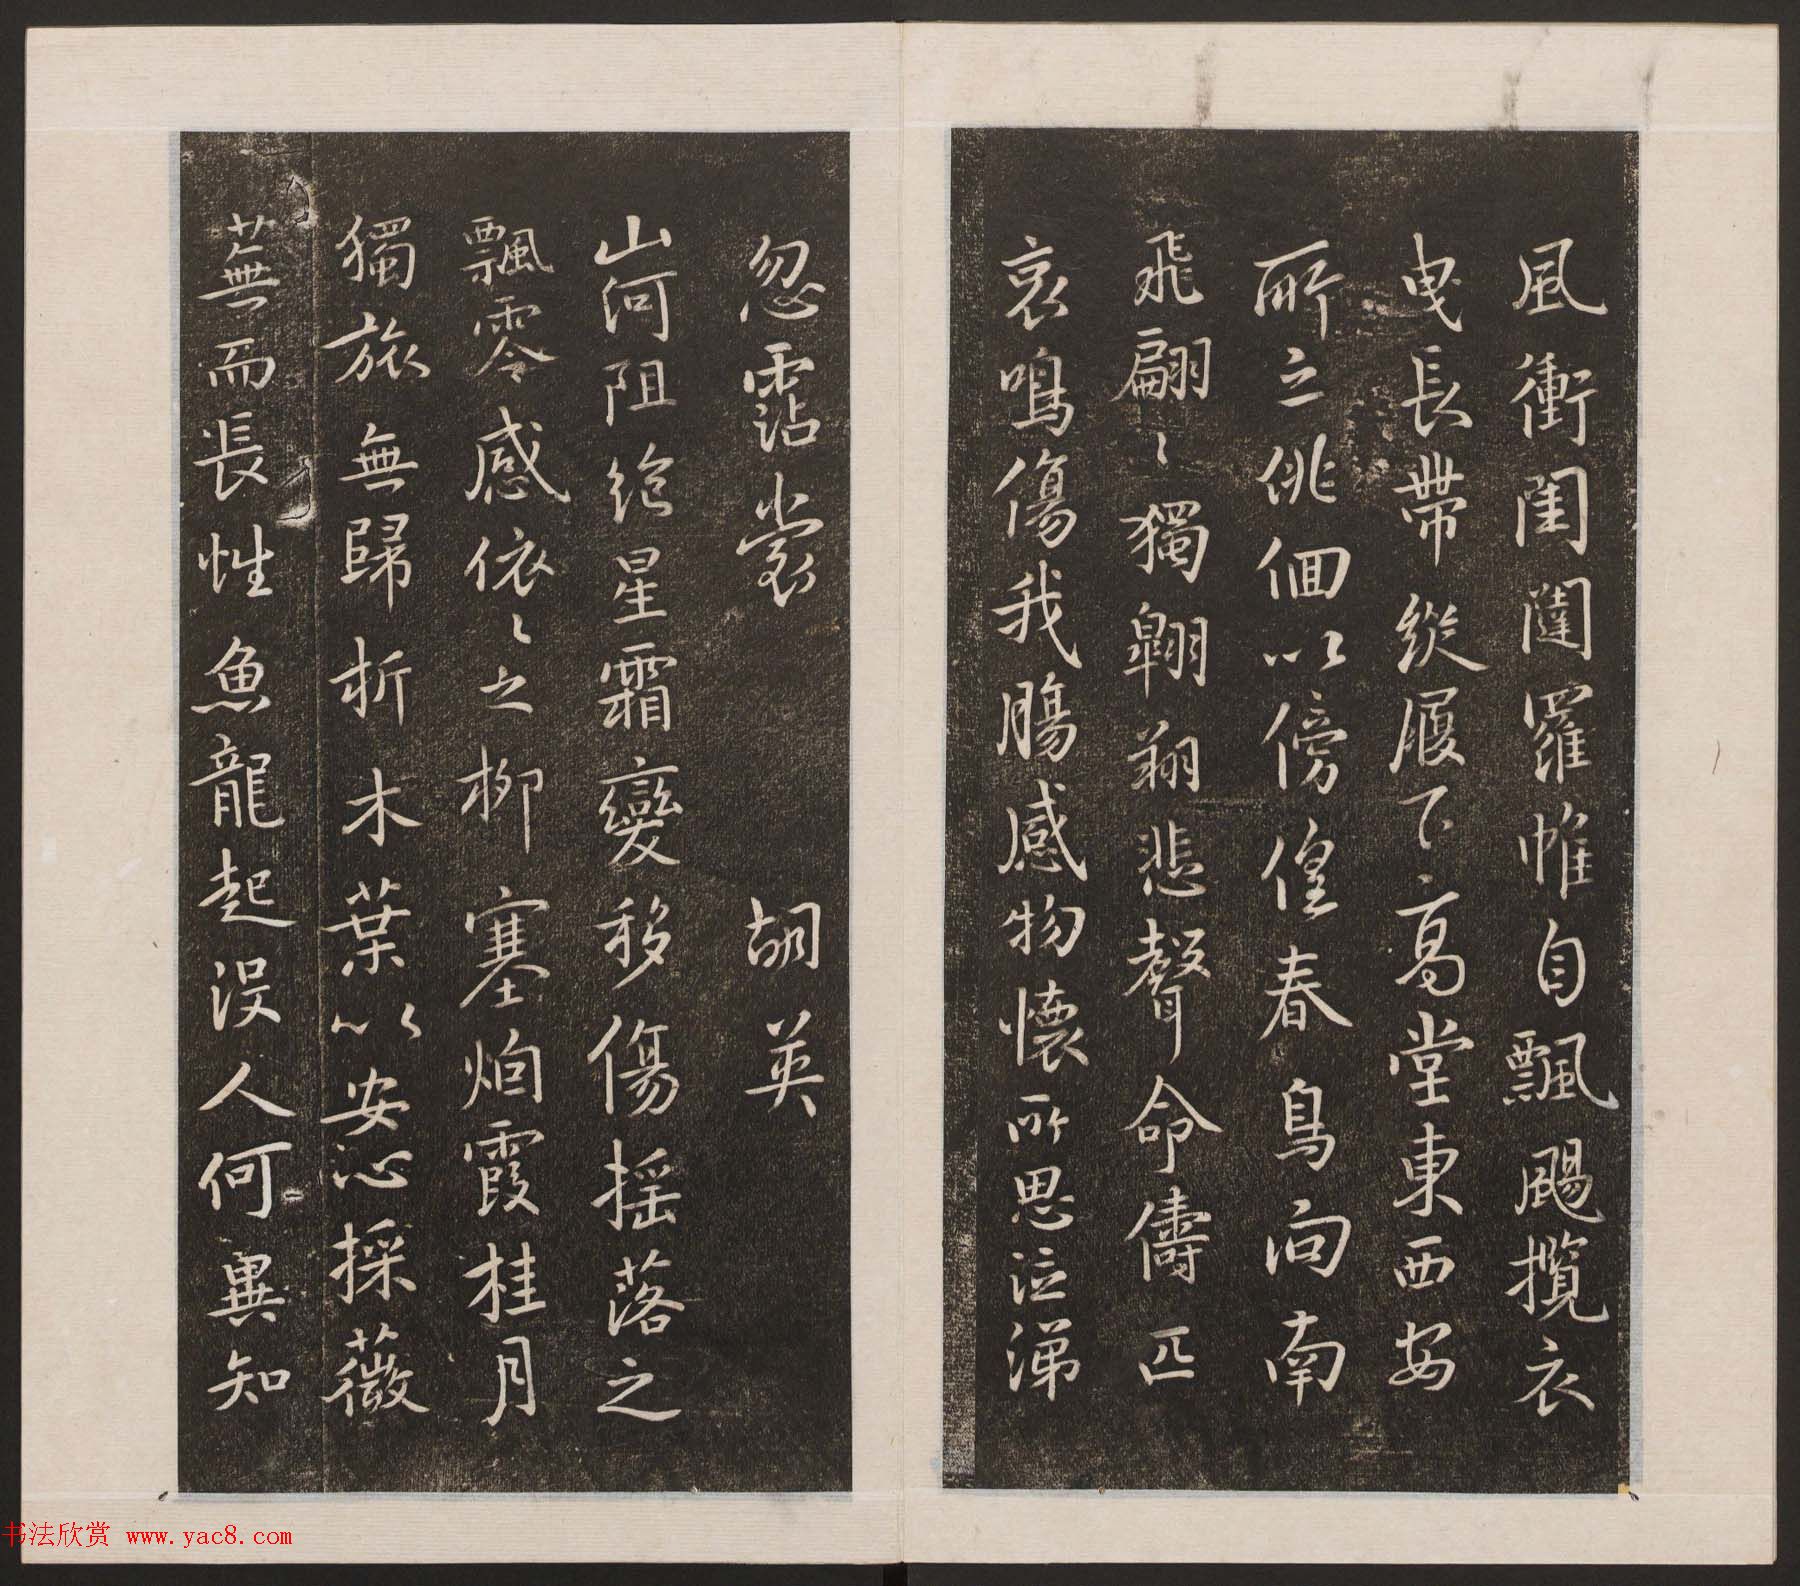 風衝閨闥羅帷自飄颺攬衣
曳長帶縱履下高堂東西安
所之徘徊以傍偟春鳥向南
飛翩〻獨翱翔悲聲命儔匹
哀鳴傷我腸感物懷所思泣涕
忽霑裳 胡英
山河阻絶星霜變移傷摇落之
飄零感依〻之柳塞烟霞桂月
獨旅無歸折木葉以安心採薇
蕪而長性魚龍起没人何異知
书法欣赏 www.yac8.com